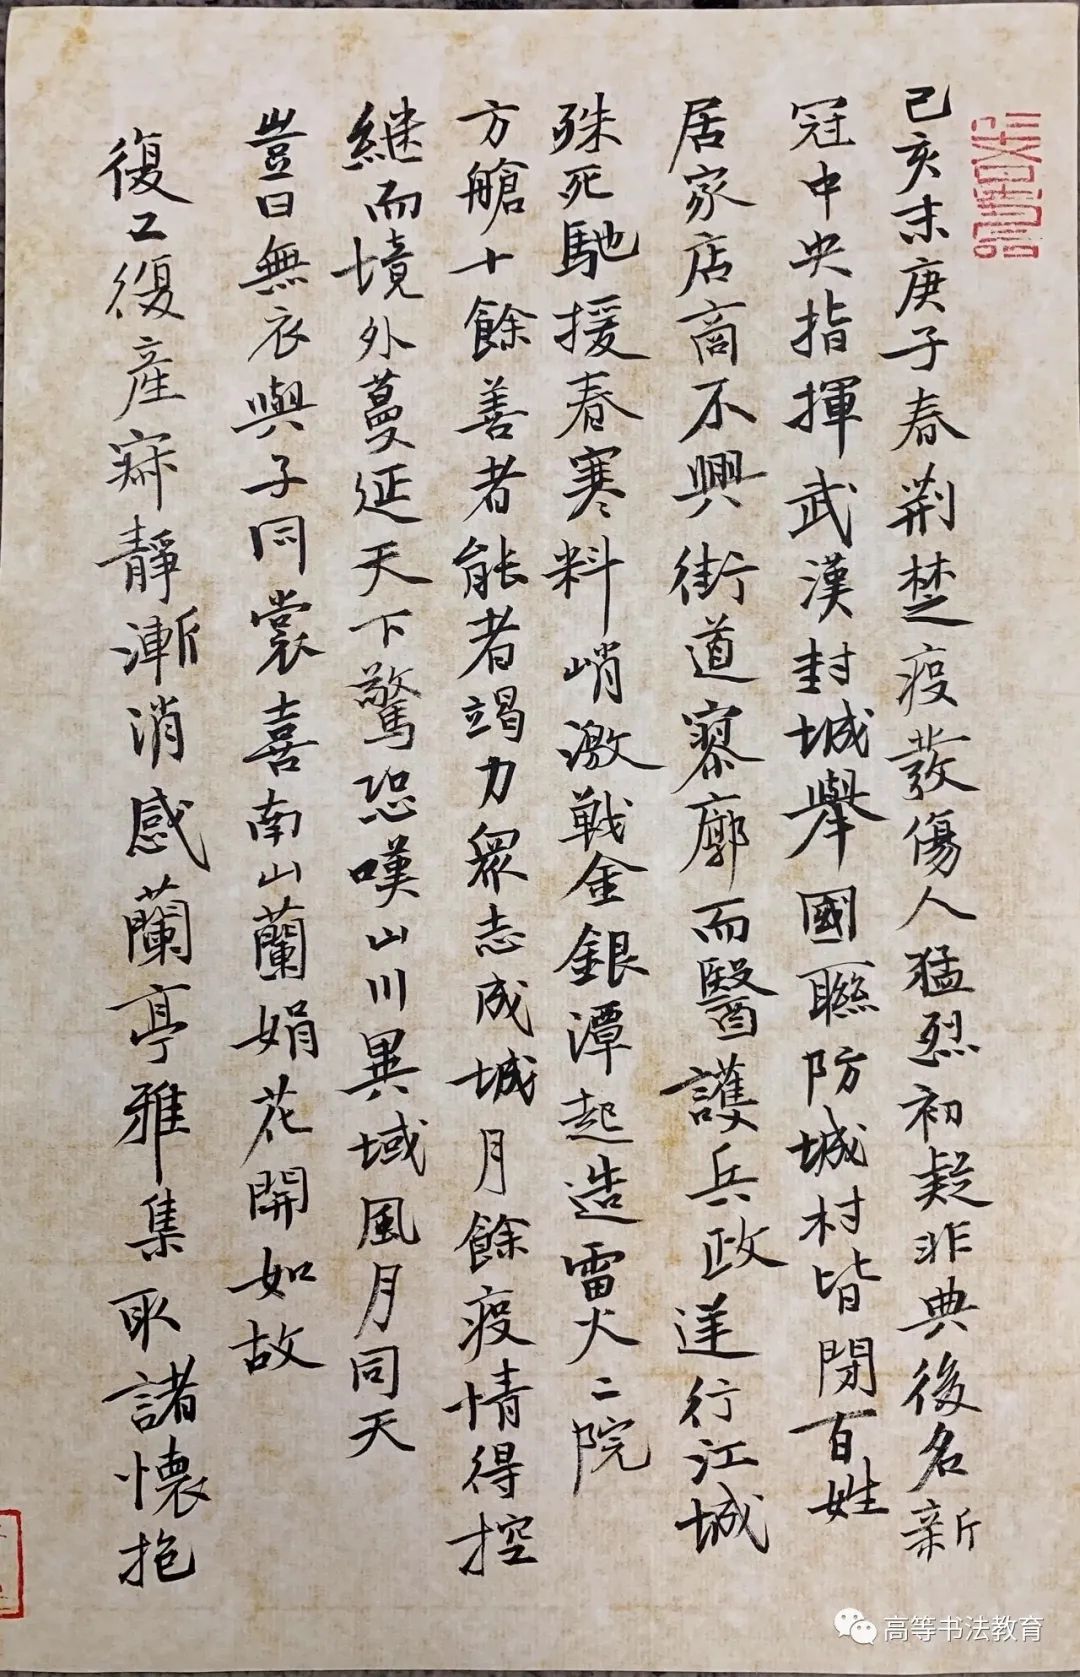 己亥末庚子春荆楚疫發傷人猛烈初疑非典後名新
冠中央指揮武漢封城舉國聯防城村皆閉百姓
居家店商不興街道寥廓而醫護兵政逆行江城
殊死馳援春寒料峭激戰金銀潭起造雷火二院
方艙十餘善者能者竭力衆志成城月餘疫情得控
継而境外蔓延天下驚恐嘆山川異域風月同天
豈曰無衣與子同裳喜南山蘭娟花開如故
復工復產寂靜漸消感蘭亭雅集取諸懷抱
高等书法教育